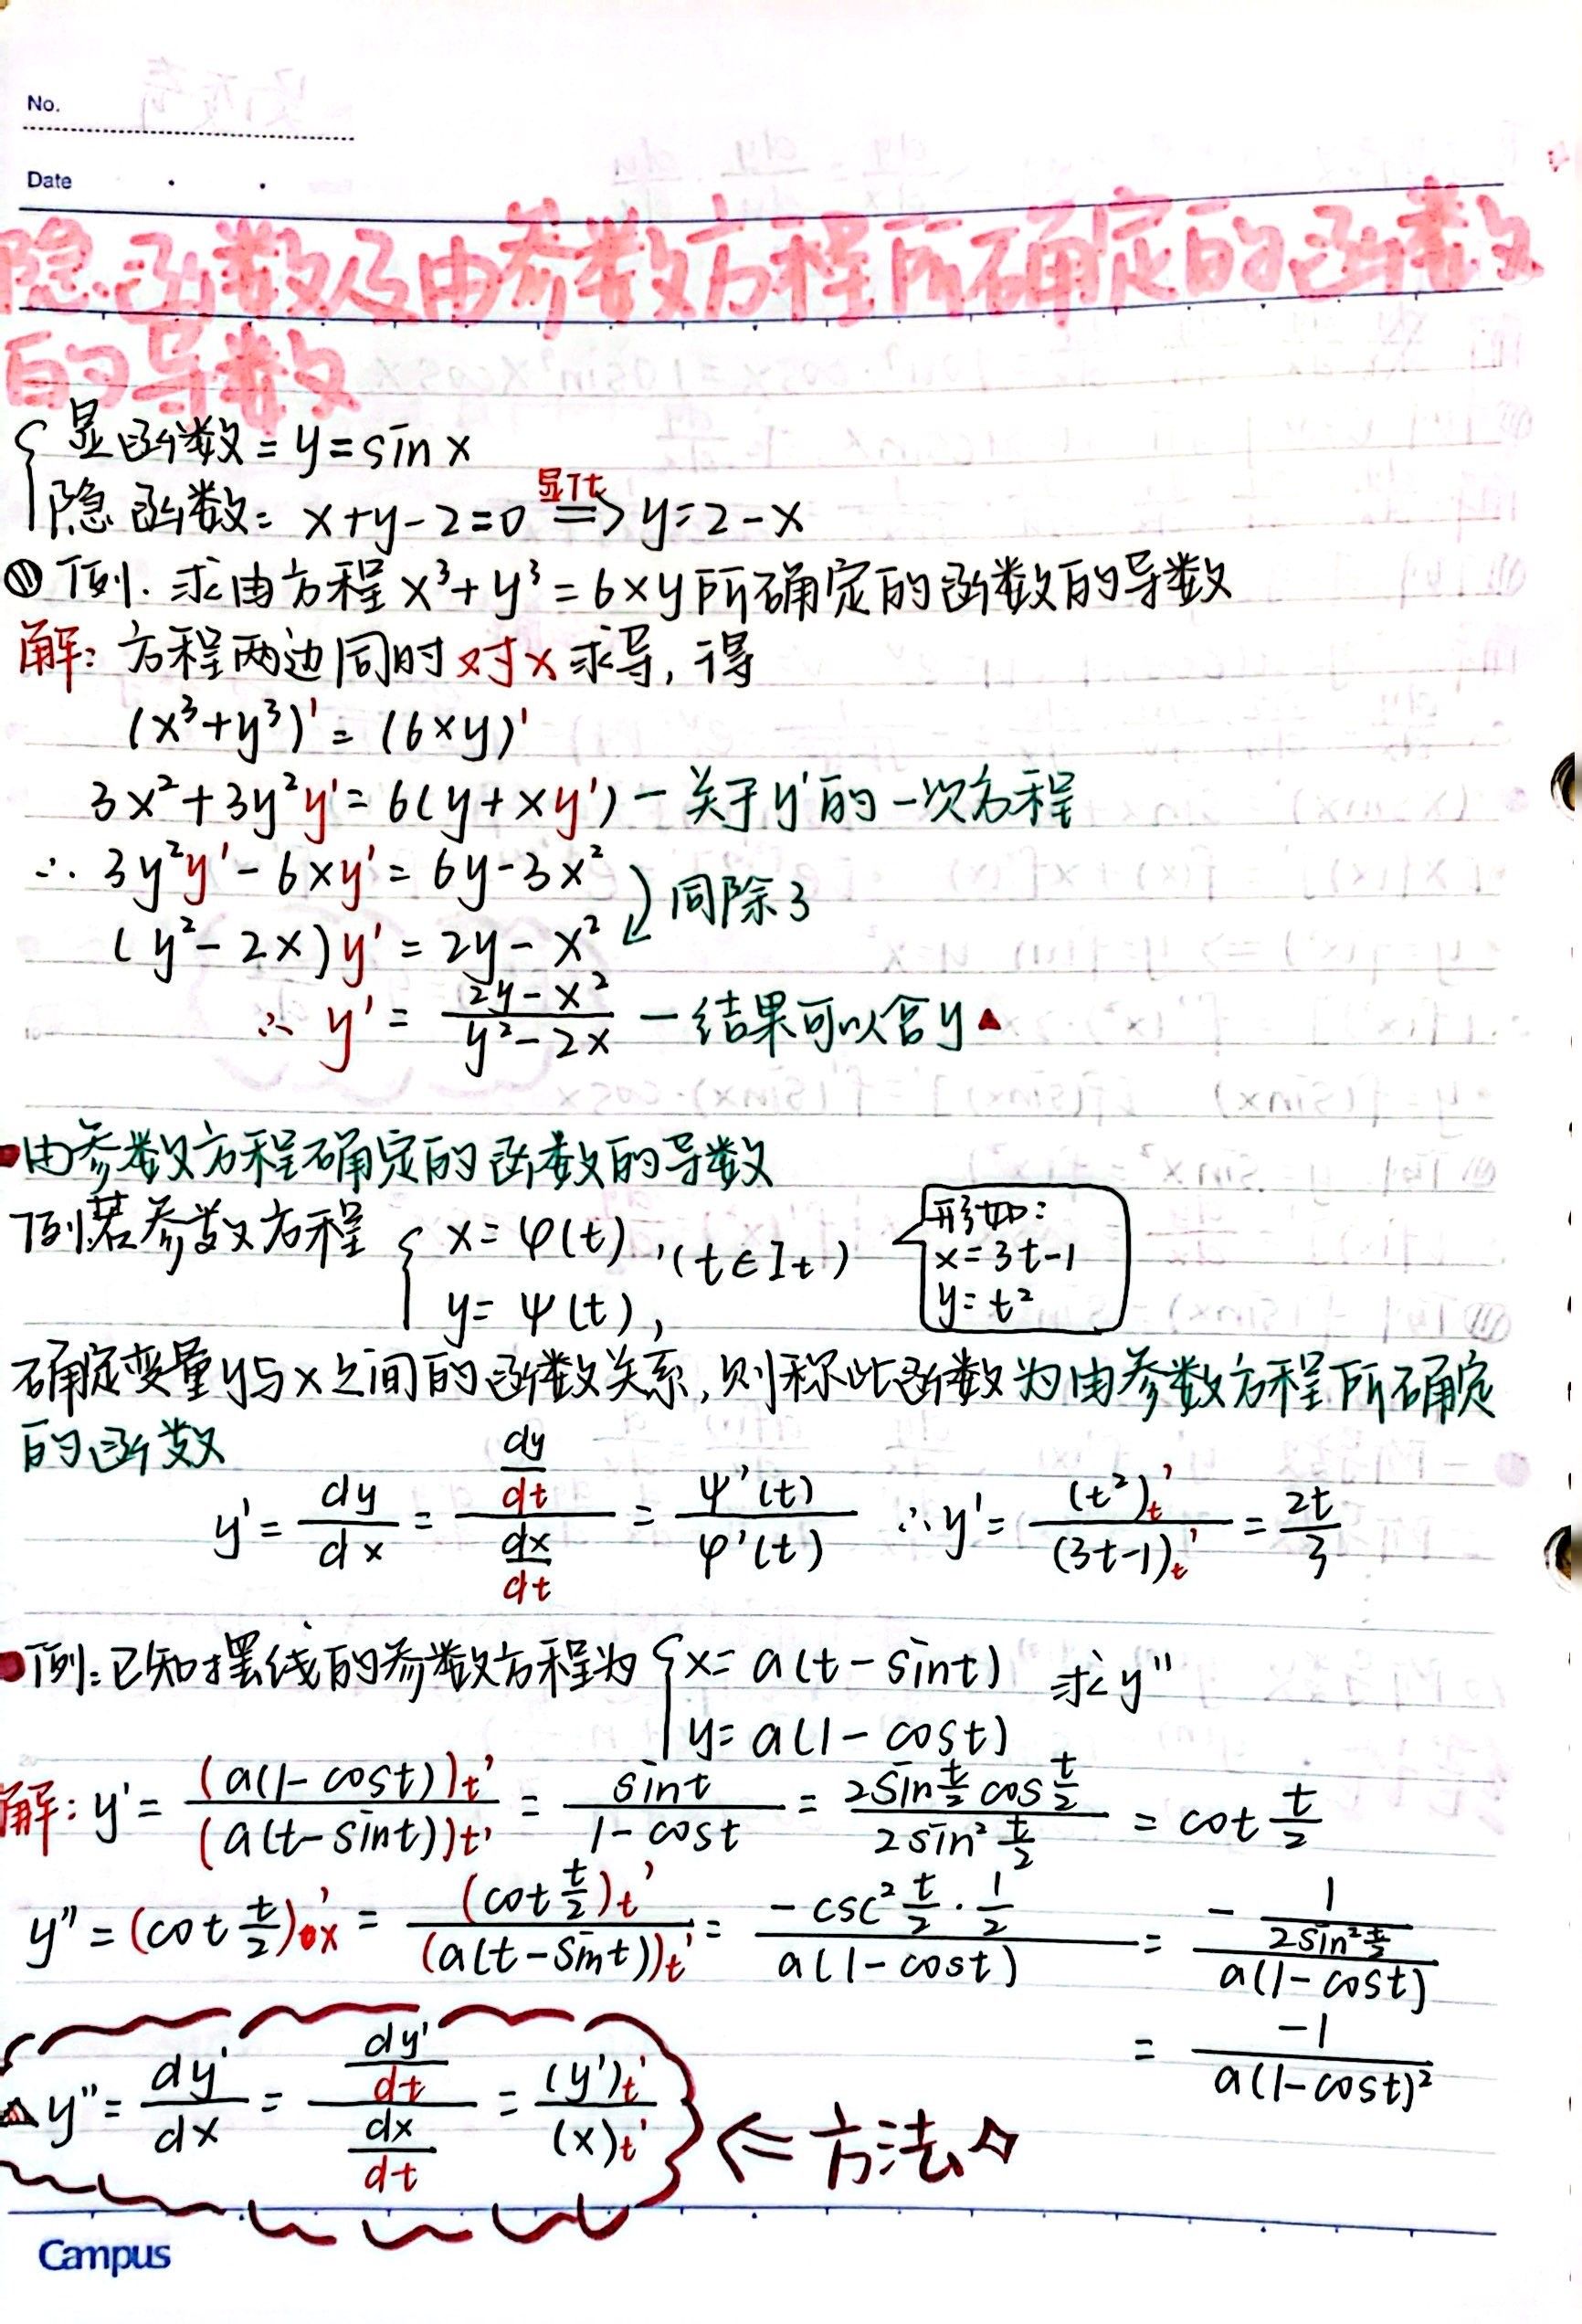 No.
Date
隐函数及由参数方程所确定的函数
的导数
显函数: y=sin x
隐函数: x+y-2=0 显化 => y=2-x
例. 求由方程 x³+y³=6xy 所确定的函数的导数
解: 方程两边同时对x求导, 得
(x³+y³)'=(6xy)'
3x²+3y²y'=6(y+xy') — 关于y'的一次方程
∴ 3y²y'-6xy'=6y-3x²
(y²-2x)y'=2y-x² 同除3
∴ y'=\frac{2y-x²}{y²-2x} — 结果可以含y▲
由参数方程确定的函数的导数
例若参数方程 { x=φ(t), y=ψ(t), (t∈I_t)
形如:
x=3t-1
y=t²
确定变量y与x之间的函数关系, 则称此函数为由参数方程所确定
的函数
y'=\frac{dy}{dx}=\frac{\frac{dy}{dt}}{\frac{dx}{dt}}=\frac{ψ'(t)}{φ'(t)} ∴y'=\frac{(t²)_t'}{(3t-1)_t'}=\frac{2t}{3}
例: 已知摆线的参数方程为 { x=a(t-sint) y=a(1-cost) 求y''
解: y'=\frac{(a(1-cost))_t'}{(a(t-sint))_t'}=\frac{sint}{1-cost}=\frac{2sin\frac{t}{2}cos\frac{t}{2}}{2sin²\frac{t}{2}}=cot\frac{t}{2}
y''=(cot\frac{t}{2})_x'=\frac{(cot\frac{t}{2})_t'}{(a(t-sint))_t'}=\frac{-csc²\frac{t}{2}·\frac{1}{2}}{a(1-cost)}=\frac{-\frac{1}{2sin²\frac{t}{2}}}{a(1-cost)}
=\frac{-1}{a(1-cost)²}
▲y''=\frac{dy'}{dx}=\frac{\frac{dy'}{dt}}{\frac{dx}{dt}}=\frac{(y')_t'}{(x)_t'} <= 方法☆
Campus